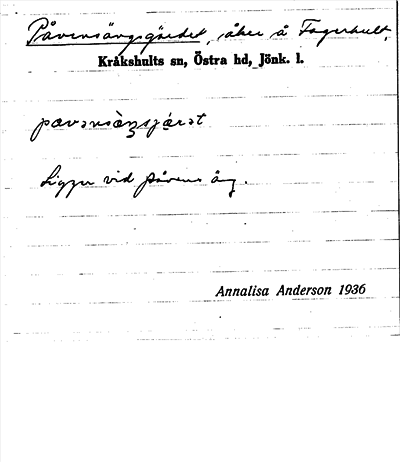 Påvensängsgärdet, åker å Fagerhult,
Kråkshults sn, Östra hd, Jönk. l.
Ligger vid påvens äng.
Annalisa Anderson 1936